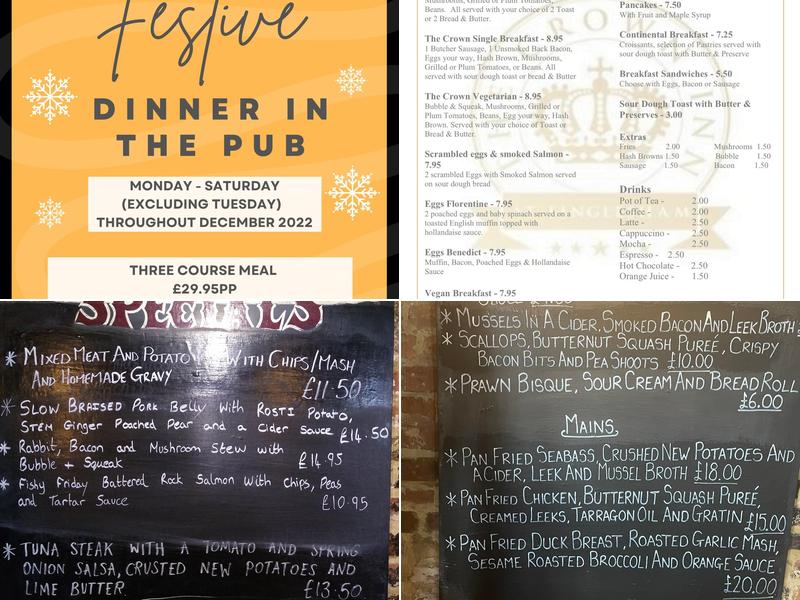 Festive
DINNER IN
THE PUB
MONDAY - SATURDAY
(EXCLUDING TUESDAY)
THROUGHOUT DECEMBER 2022
THREE COURSE MEAL
£29.95PP
Mushrooms, Grilled or Plum Tomatoes,
Beans. All served with your choice of 2 Toast
or 2 Bread & Butter.
The Crown Single Breakfast - 8.95
1 Butcher Sausage, 1 Unsmoked Back Bacon,
Eggs your way, Hash Brown, Mushrooms,
Grilled or Plum Tomatoes, or Beans. All
served with sour dough toast or bread & Butter
The Crown Vegetarian - 8.95
Bubble & Squeak, Mushrooms, Grilled or
Plum Tomatoes, Beans, Egg your way, Hash
Brown. Served with your choice of Toast or
Bread & Butter.
Scrambled eggs & smoked Salmon -
7.95
2 scrambled Eggs with Smoked Salmon served
on sour dough bread
Eggs Florentine - 7.95
2 poached eggs and baby spinach served on a
toasted English muffin topped with
hollandaise sauce.
Eggs Benedict - 7.95
Muffin, Bacon, Poached Eggs & Hollandaise
Sauce
Vegan Breakfast - 7.95
Pancakes - 7.50
With Fruit and Maple Syrup
Continental Breakfast - 7.25
Croissants, selection of Pastries served with
sour dough toast with Butter & Preserve
Breakfast Sandwiches - 5.50
Choose with Eggs, Bacon or Sausage
Sour Dough Toast with Butter &
Preserves - 3.00
Extras
Fries 2.00 Mushrooms 1.50
Hash Browns 1.50 Bubble 1.50
Sausage 1.50 Bacon 1.50
Drinks
Pot of Tea - 2.00
Coffee - 2.00
Latte - 2.50
Cappuccino - 2.50
Mocha - 2.50
Espresso - 2.50
Hot Chocolate - 2.50
Orange Juice - 1.50
SPECIALS
* MIXED MEAT AND POTATO WITH CHIPS/MASH
AND HOMEMADE GRAVY £11.50
* Slow Braised Pork Belly with Rosti Potato,
Stem Ginger Poached Pear and a Cider Sauce £14.50
* Rabbit, Bacon and Mushroom Stew with
Bubble + Squeak £14.95
* Fishy Friday Battered Rock Salmon with Chips, Peas
and Tartar Sauce £10.95
* TUNA STEAK WITH A TOMATO AND SPRING
ONION SALSA, CRUSTED NEW POTATOES AND
LIME BUTTER. £13.50
* MUSSELS IN A CIDER, SMOKED BACON AND LEEK BROTH
* SCALLOPS, BUTTERNUT SQUASH PUREÉ, CRISPY
BACON BITS AND PEA SHOOTS £10.00
* PRAWN BISQUE, SOUR CREAM AND BREAD ROLL
£6.00
MAINS
* PAN FRIED SEABASS, CRUSHED NEW POTATOES AND
A CIDER, LEEK AND MUSSEL BROTH £18.00
* PAN FRIED CHICKEN, BUTTERNUT SQUASH PUREÉ,
CREAMED LEEKS, TARRAGON OIL AND GRATIN £15.00
* PAN FRIED DUCK BREAST, ROASTED GARLIC MASH,
SESAME ROASTED BROCCOLI AND ORANGE SAUCE.
£20.00